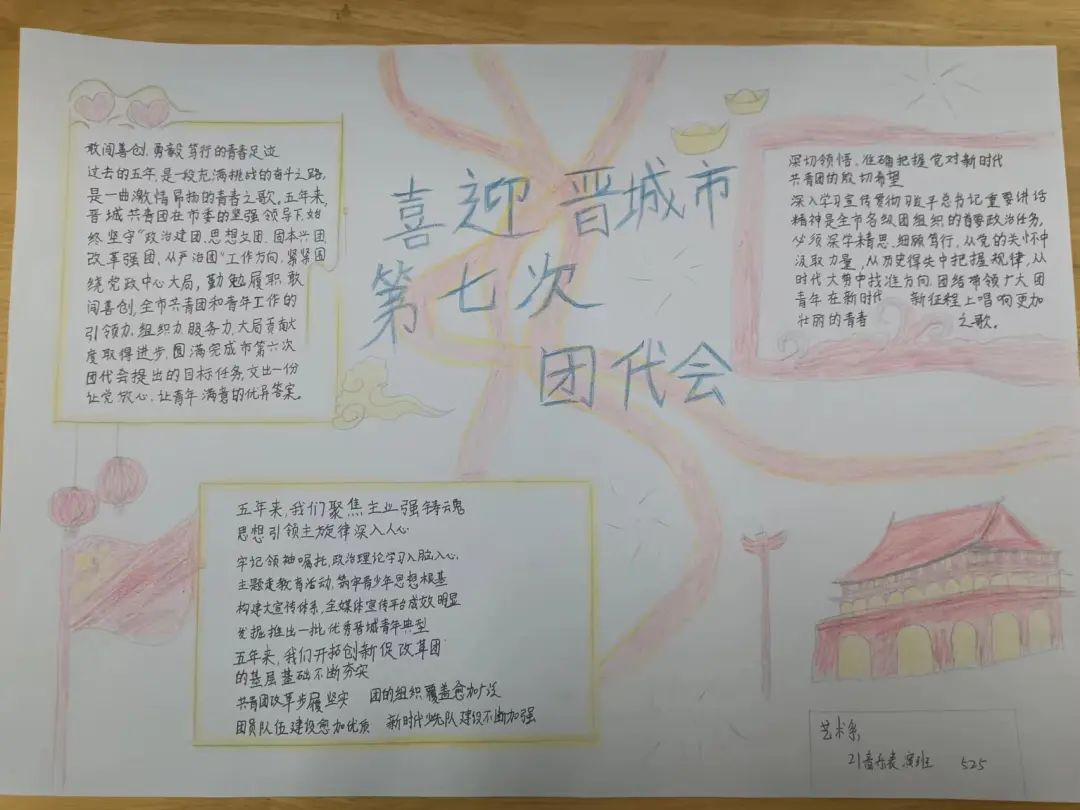 喜迎晋城市
第七次
团代会
敢闯善创、勇毅笃行的青春足迹
过去的五年,是一段充满挑战的奋斗之路,
是一曲激情昂扬的青春之歌。五年来,
晋城共青团在市委的坚强领导下,始
终坚守“政治建团、思想立团、固本兴团、
改革强团、从严治团”工作方向,紧紧围
绕党政中心大局,勤勉履职、敢
闯善创,全市共青团和青年工作的
引领力、组织力、服务力、大局贡献
度取得进步,圆满完成市第六次
团代会提出的目标任务,交出一份
让党放心、让青年满意的优异答案。
深切领悟、准确把握党对新时代
共青团的殷切希望
深入学习宣传贯彻习近平总书记重要讲话
精神是全市各级团组织的首要政治任务,
必须深学精思、细照笃行,从党的关怀中
汲取力量,从历史得失中把握规律,从
时代大势中找准方向,团结带领广大团
青年在新时代 新征程上唱响更加
壮丽的青春 之歌。
五年来,我们聚焦主业强铸魂
思想引领主旋律深入人心
牢记领袖嘱托,政治理论学习入脑入心、
主题走教育活动,筑牢青少年思想根基
构建大宣传体系,全媒体宣传平台成效明显
发掘推出一批优秀晋城青年典型
五年来,我们开拓创新促改革团
的基层基础不断夯实
共青团改革步履坚实 团的组织覆盖愈加广泛
团员队伍建设愈加优质 新时代少先队建设不断加强
艺术系
21音乐表演班 525